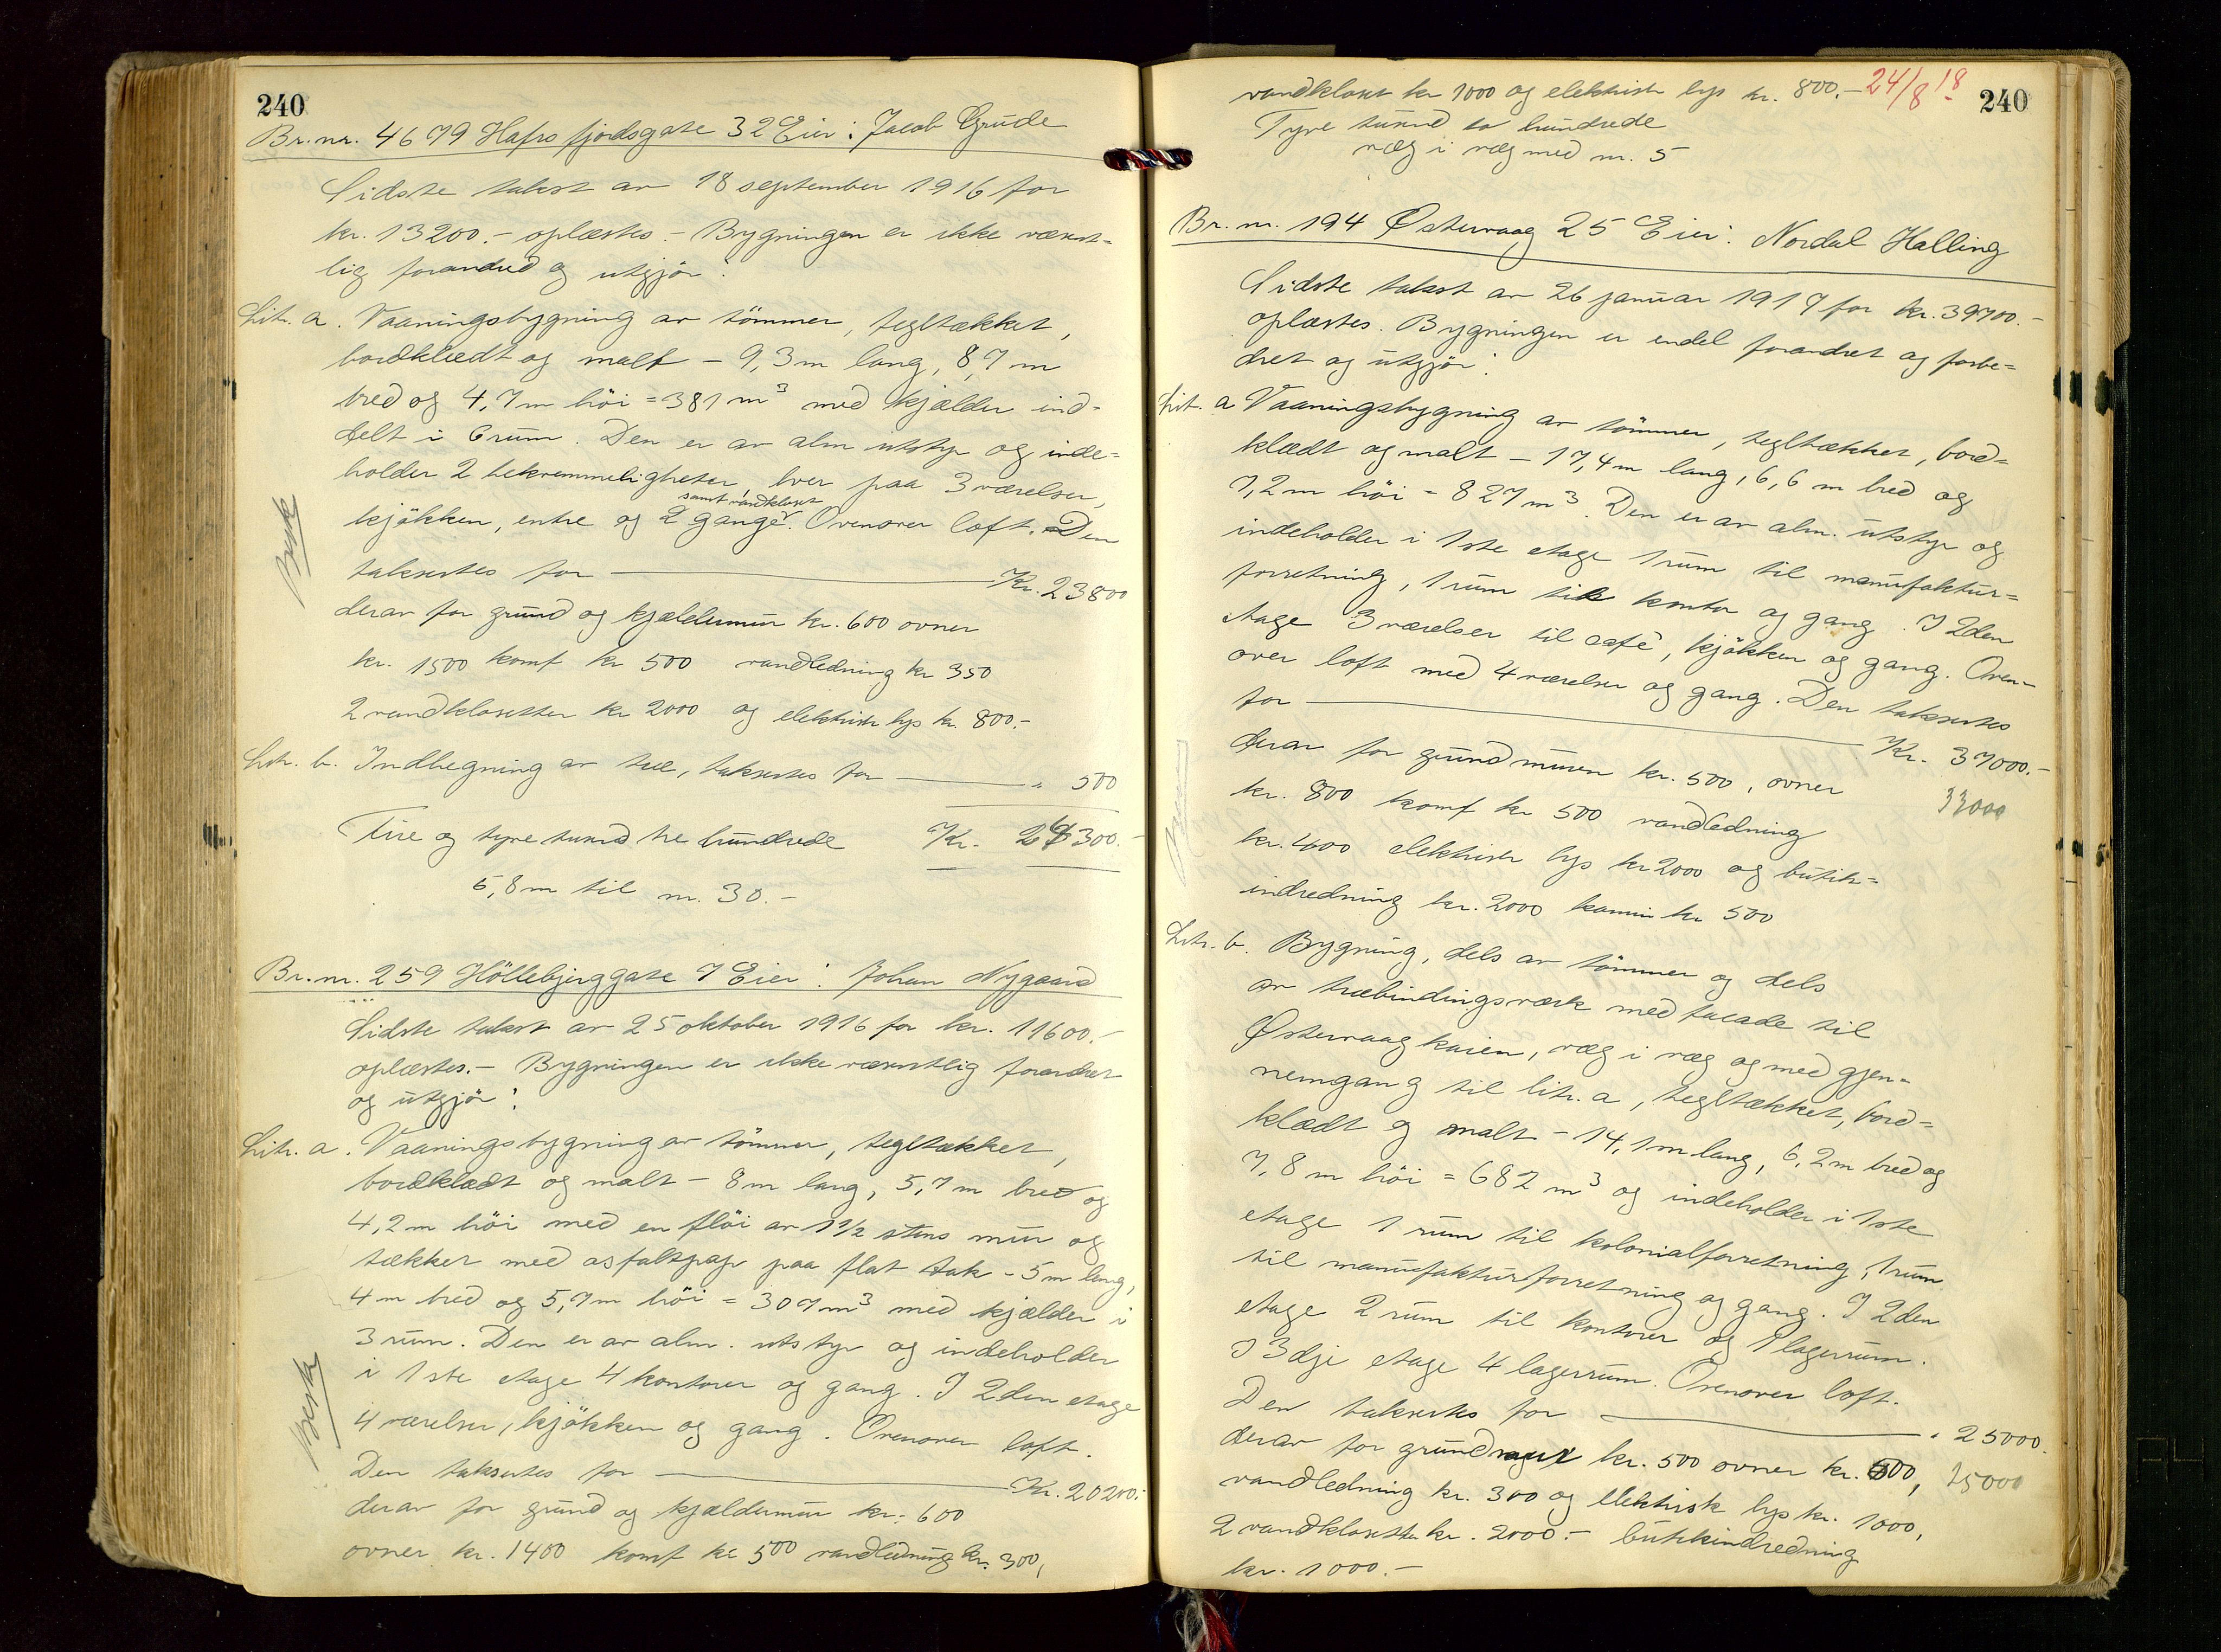 240
Br. nr. 4679 Hafrsfjordsgate 32 Eier: Jacob Grude
Sidste takst av 18 september 1916 for
kr. 13200.- oplæstes.- Bygningen er ikke væsent=
lig forandred og utgjør:
Litr. a. Vaaningsbygning av tömmer, tegltækket,
bordklædt og malt - 9,3 m lang, 8,7 m
bred og 4,7 m höi = 381 m³ med kjælder ind=
delt i 6 rum. Den er av alm utstyr og inde=
holder 2 bekvemmeligheter, hver paa 3 værelser,
samt vandkloset
kjökken, entre og 2 gange. Ovenover loft. Den
Besk
taksertes for — Kr. 23800
derav for grund og kjældermur kr. 600 ovner
kr. 1500 komf kr 500 vandledning kr 350
2 vandklosetter kr 2000 og elektrisk lys kr. 800.-
Litr. b. Indhegning av træ, taksertes for — " 500
Fire og tyve tusind tre hundrede Kr. 24300.-
5,8 m til nr. 30.-
Br. nr. 259 Höllebjerggate 7 Eier: Johan Nygaard
Sidste takst av 25 oktober 1916 for kr. 11600.-
oplæstes.- Bygningen er ikke væsentlig forandret
og utgjør:
Litr. a. Vaaningsbygning av tömmer, tegltækket,
bordklædt og malt - 8 m lang, 5,7 m bred og
4,2 m höi med en flöi av 1½ stens mur og
tækket med asfaltpap paa flat tak - 5 m lang,
4 m bred og 5,7 m höi = 307 m³ med kjælder i
3 rum. Den er av alm. utstyr og indeholder
i 1ste etage 4 kontorer og gang. I 2den etage
4 værelser, kjökken og gang. Ovenover loft.
Besk
Den taksertes for — Kr. 20200.-
derav for grund og kjældermur kr. 600
ovner kr. 1400 komf kr 500 vandledning kr. 300,
240
vandkloset kr 1000 og elektrisk lys kr. 800.- 24/8 18
Tyve tusind to hundrede
væg i væg med nr. 5
Br. nr. 194 Østervaag 25 Eier: Nordal Halling
Sidste takst av 26 januar 1917 for kr. 39700.-
oplæstes. Bygningen er endel forandret og forbe=
dret og utgjør:
Litr. a Vaaningsbygning av tömmer, tegltækket, bord=
klædt og malt - 17,4 m lang, 6,6 m bred og
7,2 m höi = 827 m³. Den er av alm. utstyr og
indeholder i 1ste etage 1 rum til manufaktur=
forretning, 1 rum til kontor og gang. I 2den
etage 3 værelser til café, kjökken og gang. Oven=
over loft med 4 værelser og gang. Den taksertes
for — Kr. 37000.-
derav for grundmuren kr. 500, ovner
33000
kr. 800 komf kr 500 vandledning
kr. 400 elektrisk lys kr 2000 og butik=
indredning kr. 2000 kamin kr 500
Litr. b. Bygning, dels av tömmer og dels
av træbindingsværk med facade til
Østervaag kaien, væg i væg og med gjen=
nemgang til litr. a, tegltækket, bord=
klædt og malt - 14,1 m lang, 6,2 m bred og
7,8 m höi = 682 m³ og indeholder i 1ste
etage 1 rum til kolonialforretning, 1 rum
til manufakturforretning og gang. I 2den
etage 2 rum til kontorer og 1 lagerrum.
I 3dje etage 4 lagerrum. Ovenover loft.
Den taksertes for — " 25000.
derav for grundmur kr. 500 ovner kr. 600, 25000
vandledning kr. 300 og elektrisk lys kr. 1000,
2 vandklosetter kr. 2000.- butikindredning
kr. 1000.-